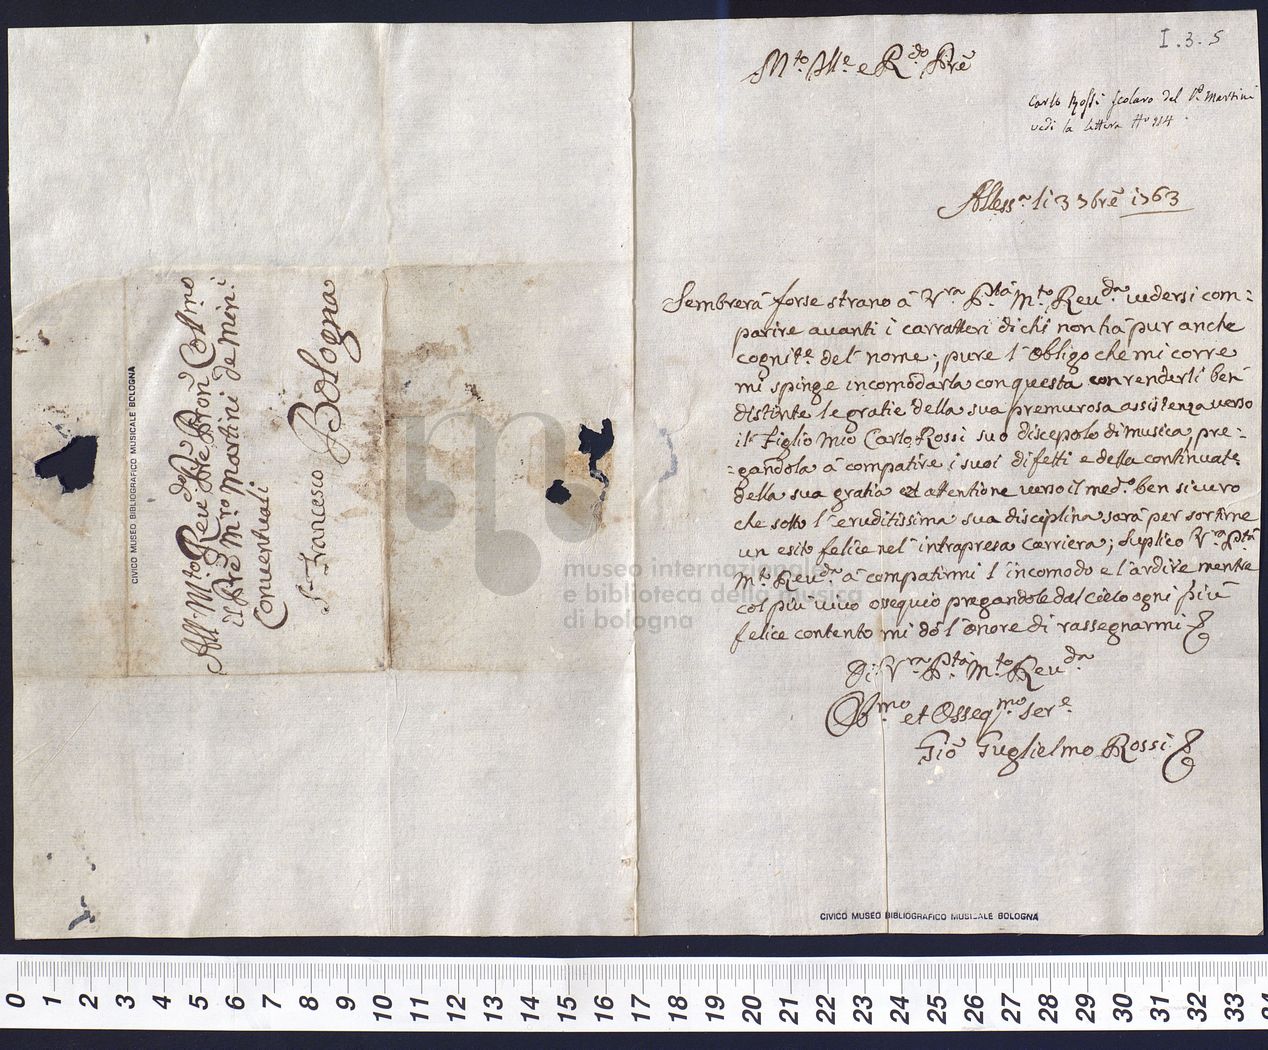 I. 3. 5
M.to Ill.e e R.do P̃re
Carlo Rossi scolaro del P. Martini
vedi la lettera N.o 914
Aless.a li 3 7bre 1763
Sembrerà forse strano à V.ra P.tà M.to Reu.da uedersi com=
parire auanti i carratteri di chi non hà pur anche
cognit.e del nome; pure l'Obligo che mi corre
mi spinge incomodarla con questa con renderli ben
distinte le gratie della sua premurosa assistenza uerso
il Figlio mio Carlo Rossi suo discepolo di musica, pre=
=gandola à compatire i suoi difetti e della continuat.e
della sua gratia ed attentione uerso il med.o ben sicuro
che sotto l'eruditissima sua disciplina sarà per sortirne
un esito felice nel intrapresa carriera; suplico V.ra P.tà
M.to Reu.da à compatirmi l'incomodo e l'ardire mentre
col più uiuo ossequio pregandole dal cielo ogni più
felice contento mi dò l'onore di rassegnarmi
Di V.ra P.tà M.to Reu.da
Obb.mo et Osseq.mo Ser.e
Giõ Guglielmo Rossi
All M.to Reu.do P̃re P̃re Pron Col.mo
il P̃re M.ro Martini de Min.i
Conuentuali
S. Francesco Bologna
CIVICO MUSEO BIBLIOGRAFICO MUSICALE BOLOGNA
CIVICO MUSEO BIBLIOGRAFICO MUSICALE BOLOGNA
museo internazionale
e biblioteca della musica
di bologna
0 1 2 3 4 5 6 7 8 9 10 11 12 13 14 15 16 17 18 19 20 21 22 23 24 25 26 27 28 29 30 31 32 33 34